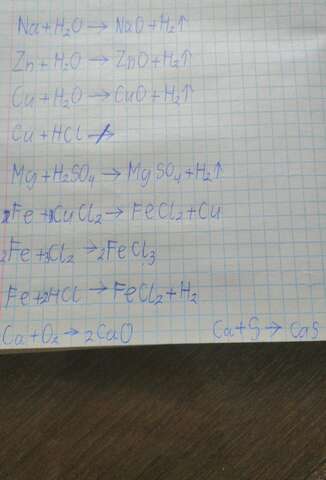 Na+H₂O → NaO+H₂↑
Zn+H₂O → ZnO+H₂↑
Cu+H₂O → CuO+H₂↑
Cu+HCl ↛
Mg+H₂SO₄ → MgSO₄+H₂↑
Fe+CuCl₂ → FeCl₂+Cu
2Fe+3Cl₂ → 2FeCl₃
Fe+2HCl → FeCl₂+H₂
Ca+O₂ → 2CaO Ca+S → CaS